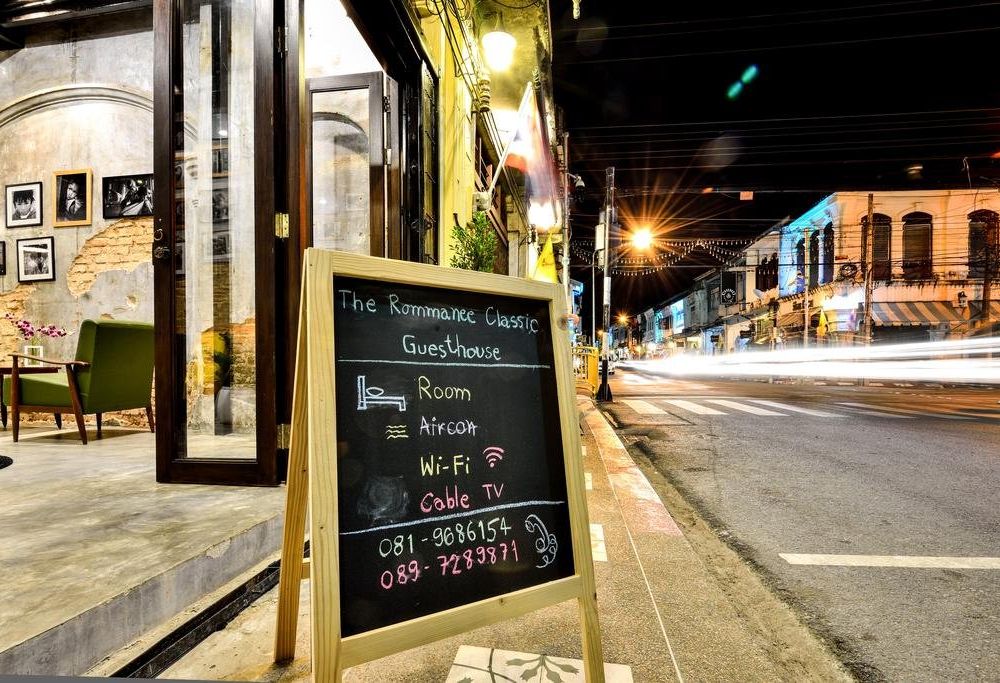 The Rommanee Classic
Guesthouse
Room
Aircon
Wi-Fi
Cable TV
081-9686154
089-7289871